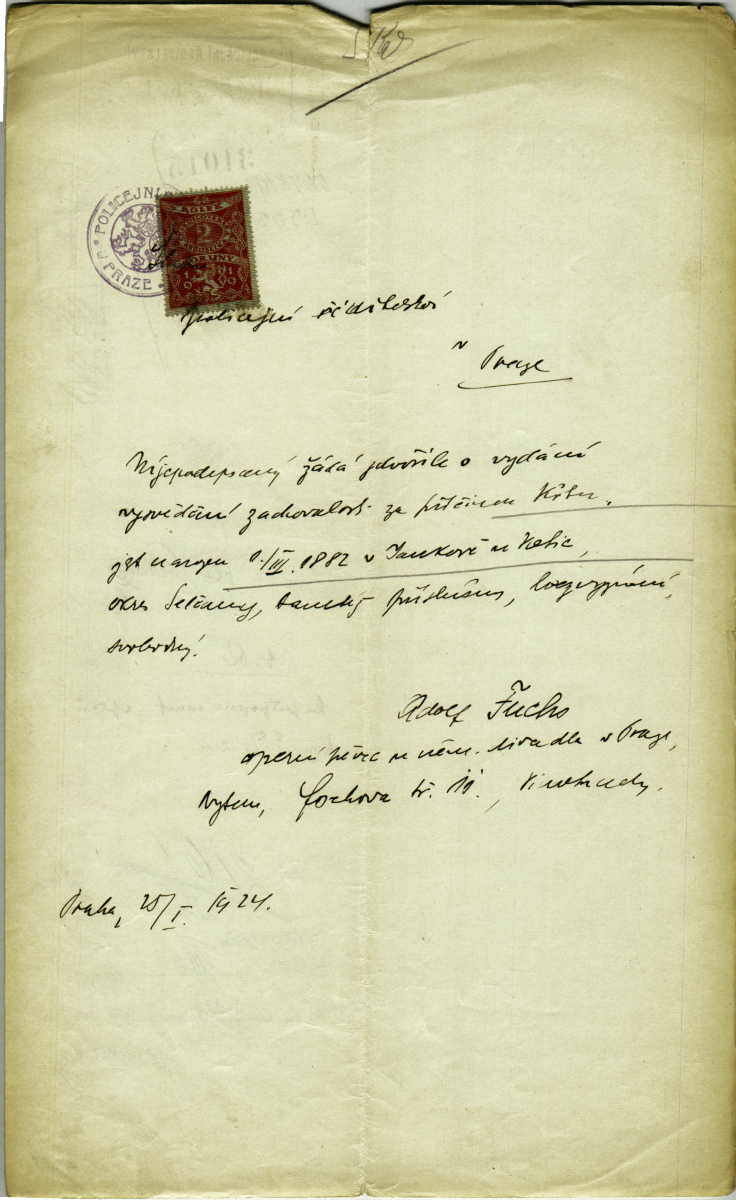 POLICEJNÍ
V PRAZE
KOLEK
2
KORUNY
1919
policejní ředitelství
v Praze
Nížepodepsaný žádá zdvořile o vydání
vysvědčení zachovalosti za příčinou
jest narozen 1./III. 1882 v Jankově u Votic,
okres Selčany, tamtéž příslušný,
svobodný.
Adolf Fuchs
operní pěvec u něm. divadla v Praze,
bytem, Fochova tř. , Vinohrady.
Praha, 25/I. 1924.